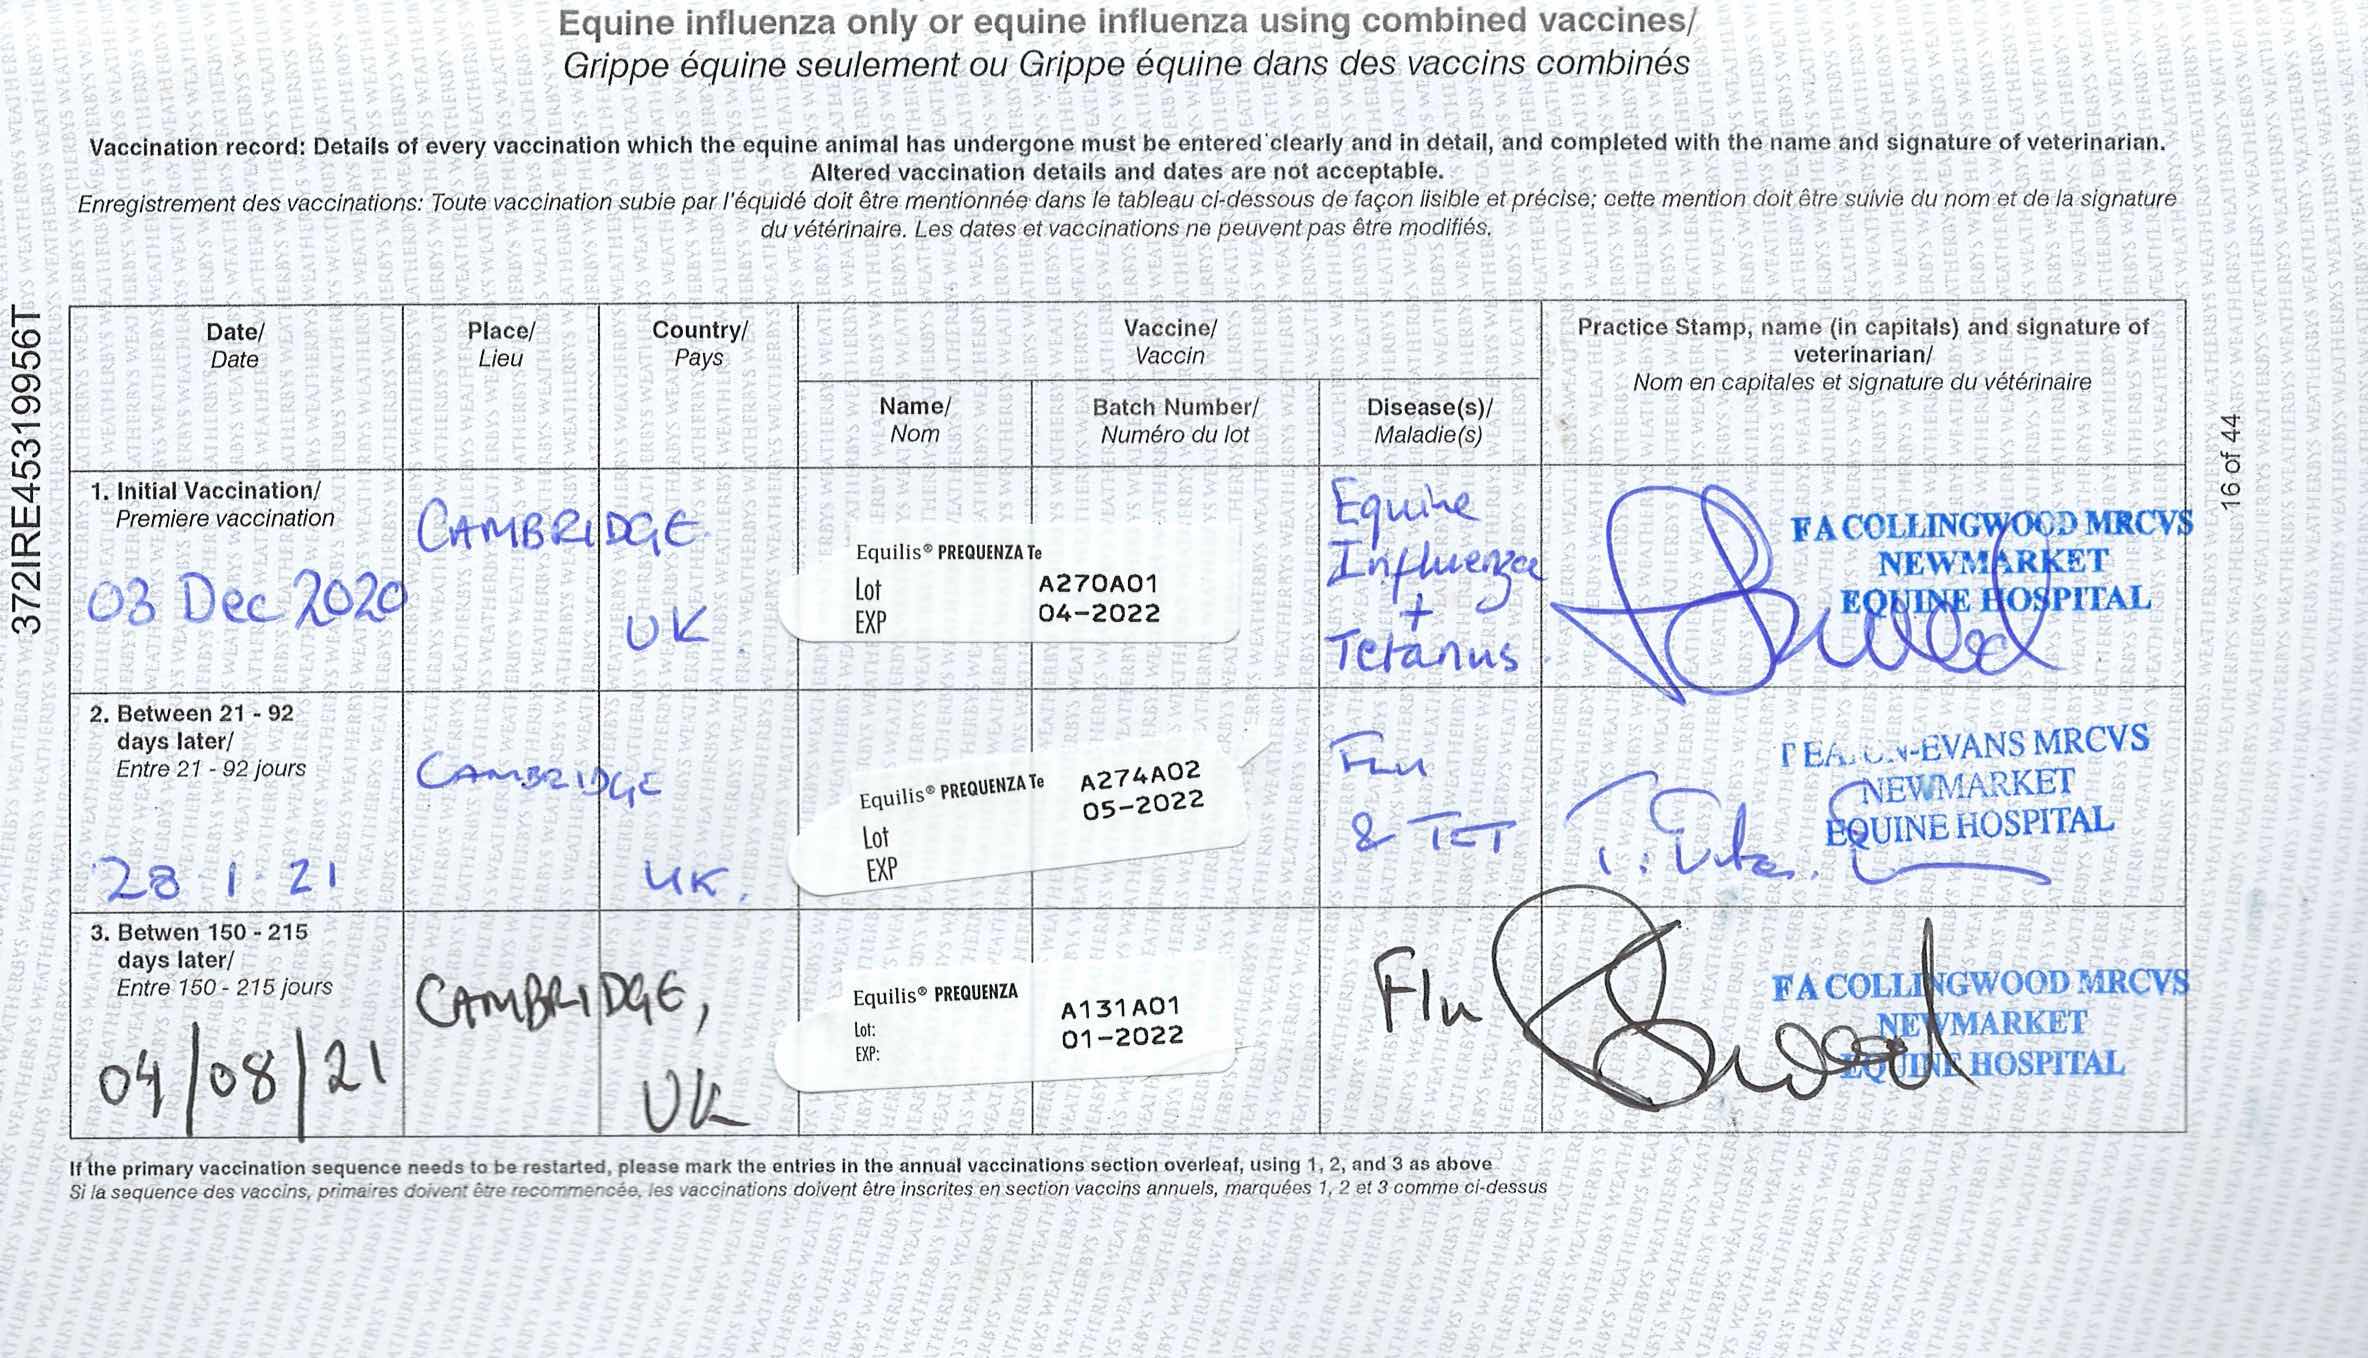 Equine influenza only or equine influenza using combined vaccines/
Grippe équine seulement ou Grippe équine dans des vaccins combinés
Vaccination record: Details of every vaccination which the equine animal has undergone must be entered clearly and in detail, and completed with the name and signature of veterinarian.
Altered vaccination details and dates are not acceptable.
Enregistrement des vaccinations: Toute vaccination subie par l'équidé doit être mentionnée dans le tableau ci-dessous de façon lisible et précise; cette mention doit être suivie du nom et de la signature
du vétérinaire. Les dates et vaccinations ne peuvent pas être modifiés.
372IRE45319956T
16 of 44
Date/
Date
Place/
Lieu
Country/
Pays
Vaccine/
Vaccin
Name/
Nom
Batch Number/
Numéro du lot
Disease(s)/
Maladie(s)
Practice Stamp, name (in capitals) and signature of
veterinarian/
Nom en capitales et signature du vétérinaire
1. Initial Vaccination/
Premiere vaccination
03 Dec 2020
CAMBRIDGE
UK.
Equilis® PREQUENZA Te
Lot A270A01
EXP 04-2022
Equine
Influenza
+
Tetanus
FA COLLINGWOOD MRCVS
NEWMARKET
EQUINE HOSPITAL
2. Between 21 - 92
days later/
Entre 21 - 92 jours
28.1.21
CAMBRIDGE
UK.
Equilis® PREQUENZA Te A274A02
05-2022
Lot
EXP
Flu
& TET
-EVANS MRCVS
NEWMARKET
EQUINE HOSPITAL
3. Betwen 150 - 215
days later/
Entre 150 - 215 jours
04/08/21
CAMBRIDGE,
UK
Equilis® PREQUENZA
Lot: A131A01
EXP: 01-2022
Flu
FA COLLINGWOOD MRCVS
NEWMARKET
EQUINE HOSPITAL
If the primary vaccination sequence needs to be restarted, please mark the entries in the annual vaccinations section overleaf, using 1, 2, and 3 as above
Si la sequence des vaccins, primaires doivent être recommencée, les vaccinations doivent être inscrites en section vaccins annuels, marquées 1, 2 et 3 comme ci-dessus